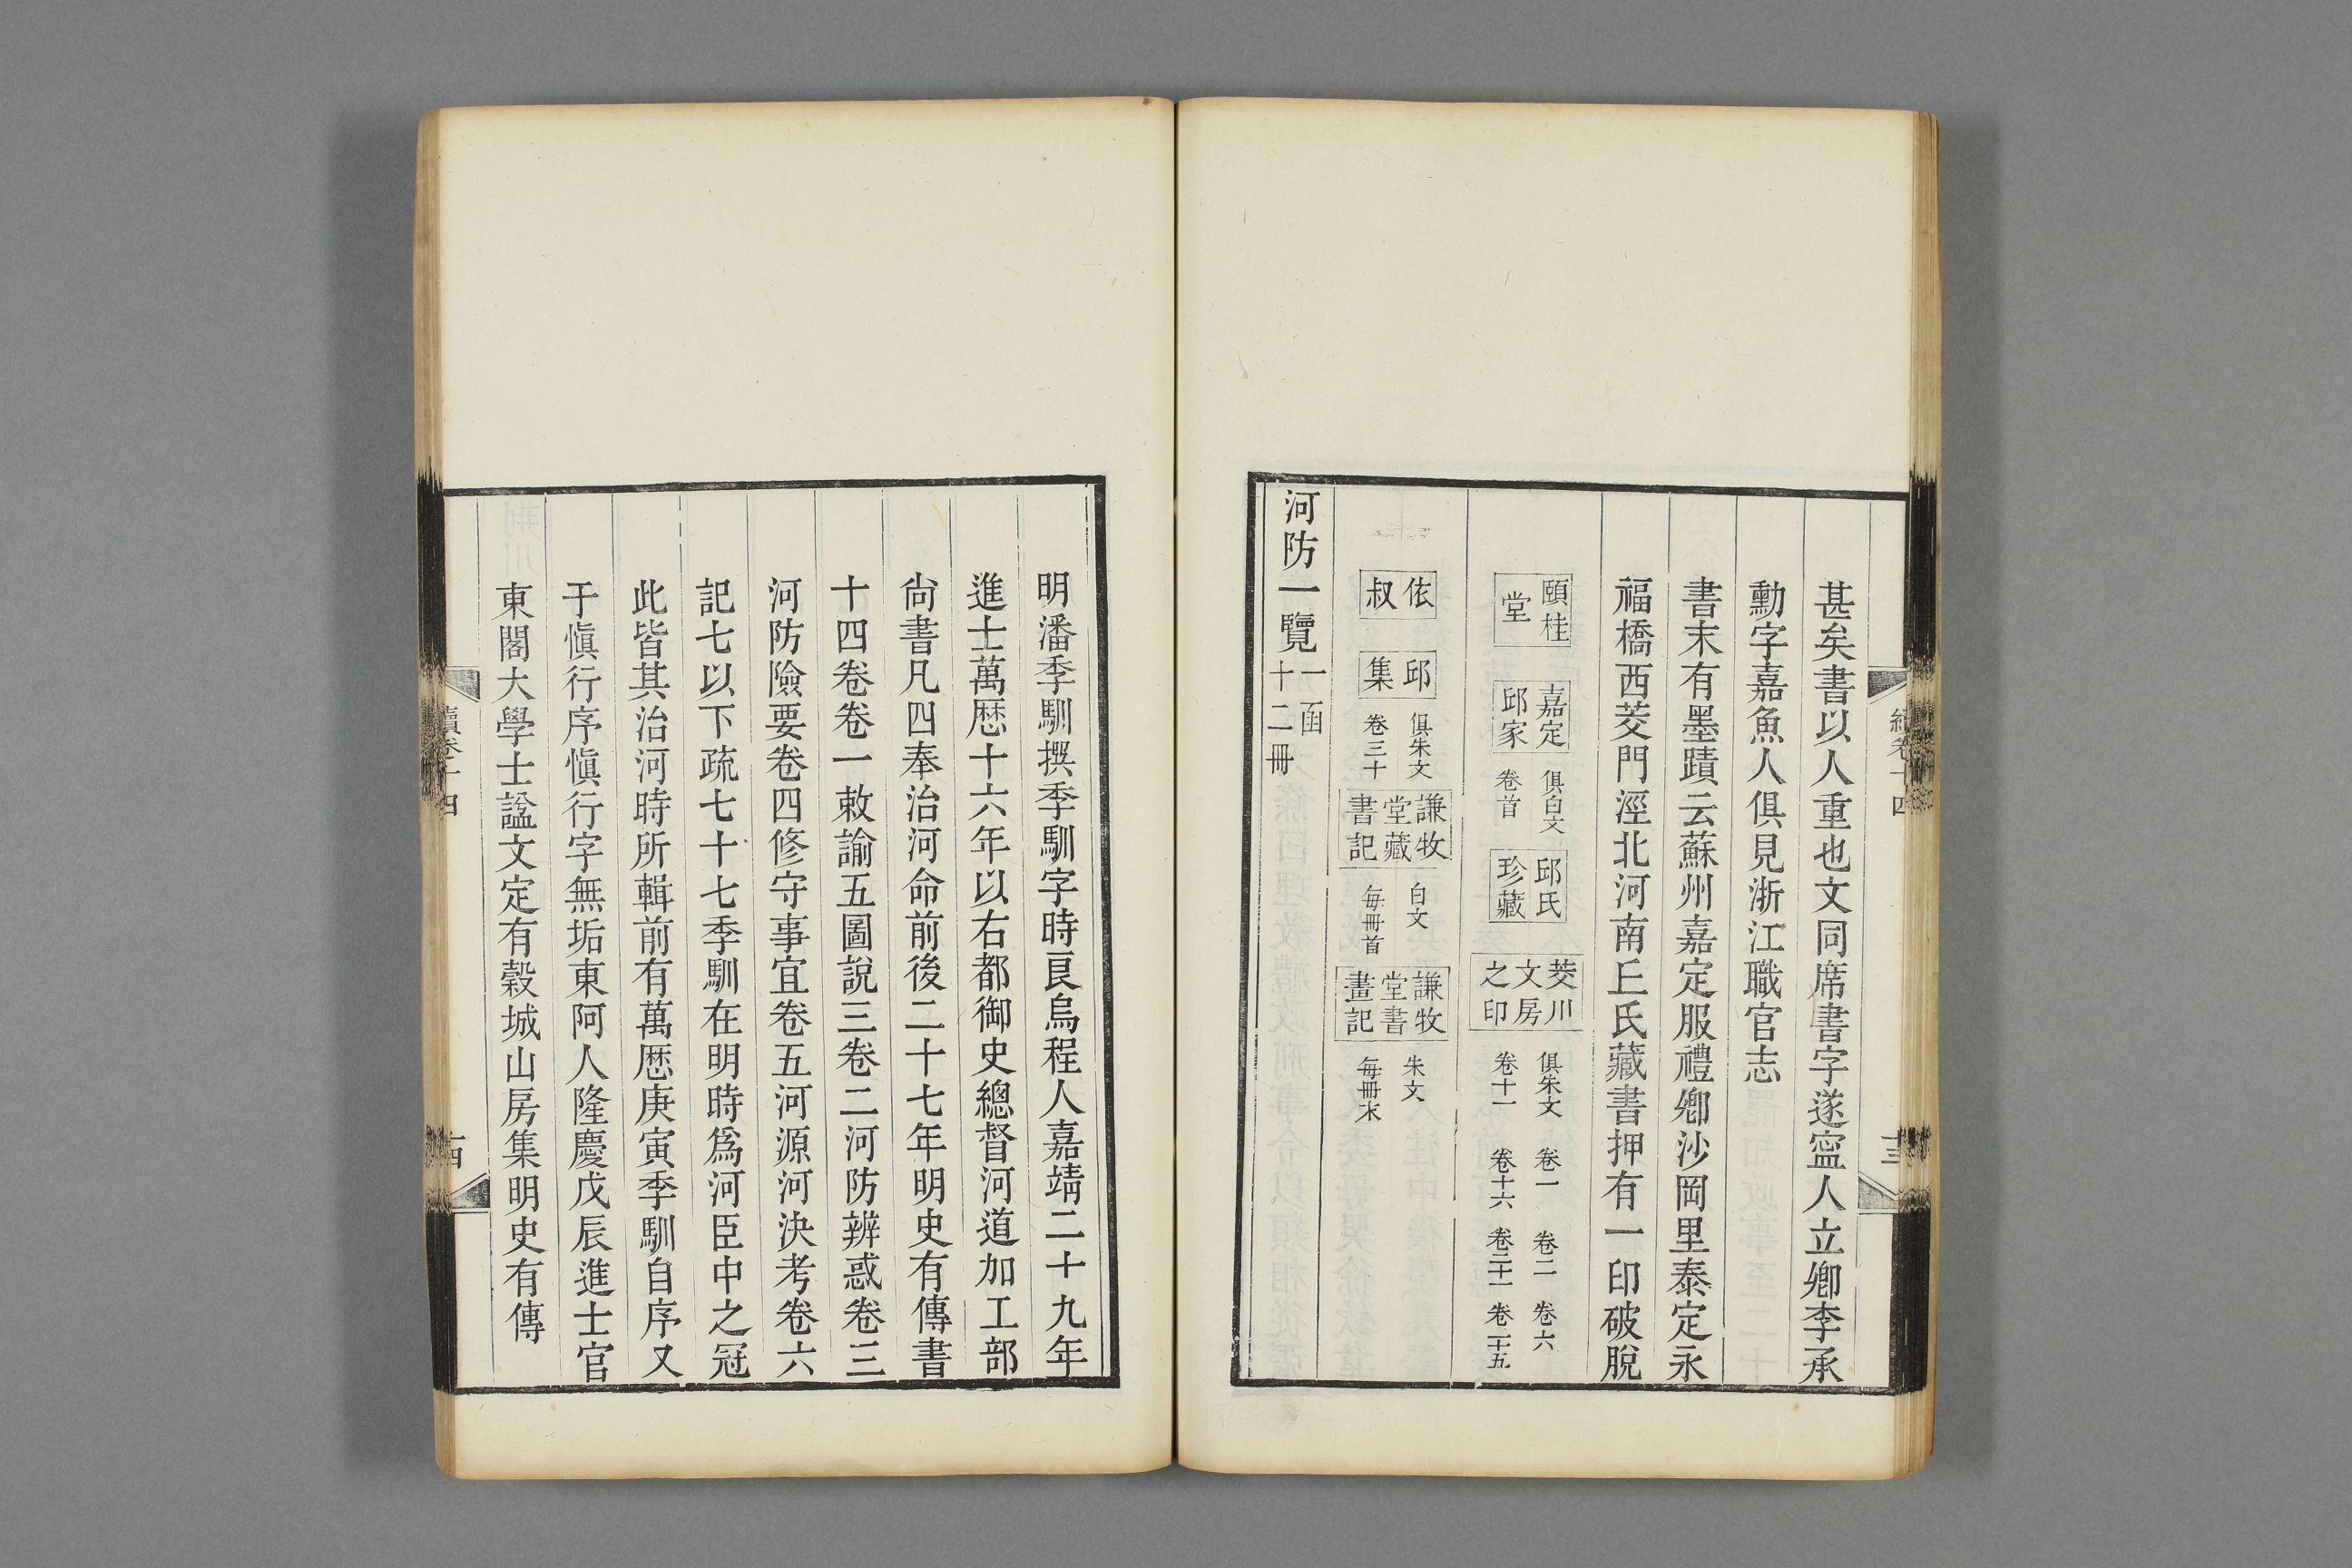 甚矣書以人重也文同席書字遂寍人立卿李承
勳字嘉魚人俱見浙江職官志
書末有墨蹟云蘇州嘉定服禮鄉沙岡里泰定永
福橋西茭門涇北河南丘氏藏書押有一印破脫
頤桂堂 嘉定邱家 俱白文卷首 邱氏珍藏 茭川文房之印 俱朱文卷十一 卷一卷十六 卷二卷二十一 卷六卷二十五
依叔 邱集 俱朱文卷三十 謙牧堂藏書記 白文每冊首 謙牧堂書畫記 朱文每冊末
河防一覽 一函十二冊
續卷十四 十三
明潘季馴撰季馴字時良烏程人嘉靖二十九年
進士萬厯十六年以右都御史總督河道加工部
尙書凡四奉治河命前後二十七年明史有傳書
十四卷卷一敕諭五圖說三卷二河防辨惑卷三
河防險要卷四修守事宜卷五河源河決考卷六
記七以下疏七十七季馴在明時爲河臣中之冠
此皆其治河時所輯前有萬厯庚寅季馴自序又
于愼行序愼行字無垢東阿人隆慶戊辰進士官
東閣大學士諡文定有穀城山房集明史有傳
續卷十四 十四